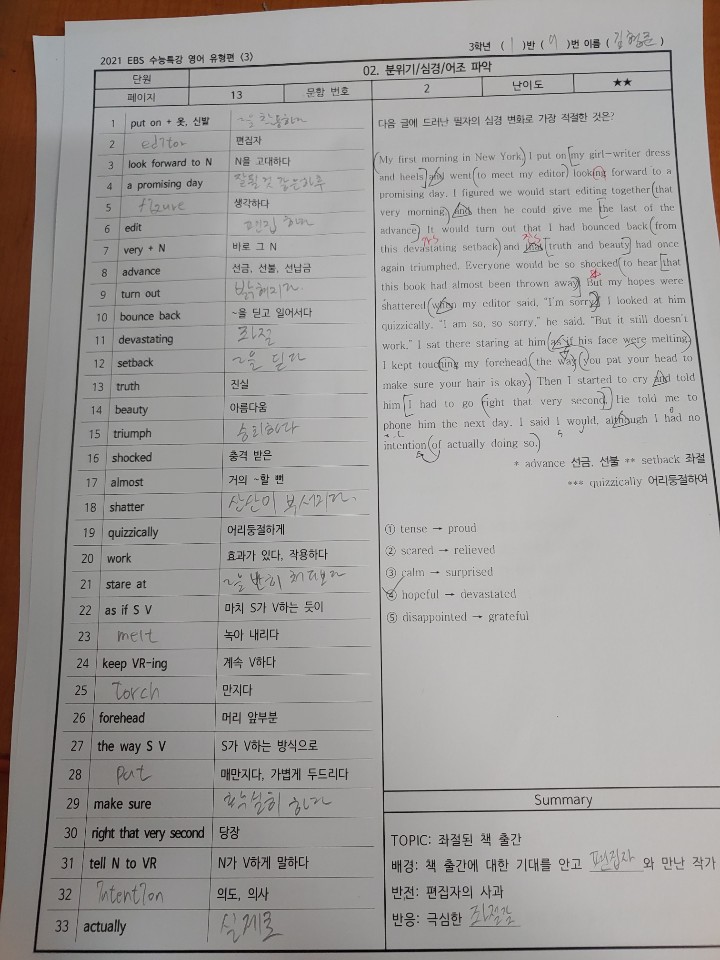 2021 EBS 수능특강 영어 유형편 (3)
3학년 ( 1 )반 ( 9 )번 이름 ( )
단원 02. 분위기/심경/어조 파악
페이지 13 문항 번호 2 난이도 ★★
1 put on + 옷, 신발 ~을 착용하다
2 editor 편집자
3 look forward to N N을 고대하다
4 a promising day 잘될 것 같은 하루
5 figure 생각하다
6 edit 편집하다
7 very + N 바로 그 N
8 advance 선금, 선불, 선납금
9 turn out 밝혀지다.
10 bounce back ~을 딛고 일어서다
11 devastating 좌절
12 setback ~을 딛다
13 truth 진실
14 beauty 아름다움
15 triumph 승리하다
16 shocked 충격 받은
17 almost 거의 ~할 뻔
18 shatter 산산이 부서지다.
19 quizzically 어리둥절하게
20 work 효과가 있다, 작용하다
21 stare at ~을 빤히 쳐다보다
22 as if S V 마치 S가 V하는 듯이
23 melt 녹아 내리다
24 keep VR-ing 계속 V하다
25 torch 만지다
26 forehead 머리 앞부분
27 the way S V S가 V하는 방식으로
28 put 매만지다, 가볍게 두드리다
29 make sure 확실히 하다
30 right that very second 당장
31 tell N to VR N가 V하게 말하다
32 intention 의도, 의사
33 actually 실제로
다음 글에 드러난 필자의 심경 변화로 가장 적절한 것은?
My first morning in New York, I put on my girl-writer dress
and heels and went to meet my editor, looking forward to a
promising day. I figured we would start editing together that
very morning, and then he could give me the last of the
advance. It would turn out that I had bounced back from
this devastating setback and that truth and beauty had once
again triumphed. Everyone would be so shocked to hear that
this book had almost been thrown away. But my hopes were
shattered when my editor said, "I'm sorry." I looked at him
quizzically. "I am so, so sorry," he said. "But it still doesn't
work." I sat there staring at him as if his face were melting.
I kept touching my forehead, the way you pat your head to
make sure your hair is okay. Then I started to cry and told
him I had to go right that very second. He told me to
phone him the next day. I said I would, although I had no
intention of actually doing so.
* advance 선금, 선불 ** setback 좌절
*** quizzically 어리둥절하여
① tense → proud
② scared → relieved
③ calm → surprised
④ hopeful → devastated
⑤ disappointed → grateful
Summary
TOPIC: 좌절된 책 출간
배경: 책 출간에 대한 기대를 안고 편집자 와 만난 작가
반전: 편집자의 사과
반응: 극심한 좌절감